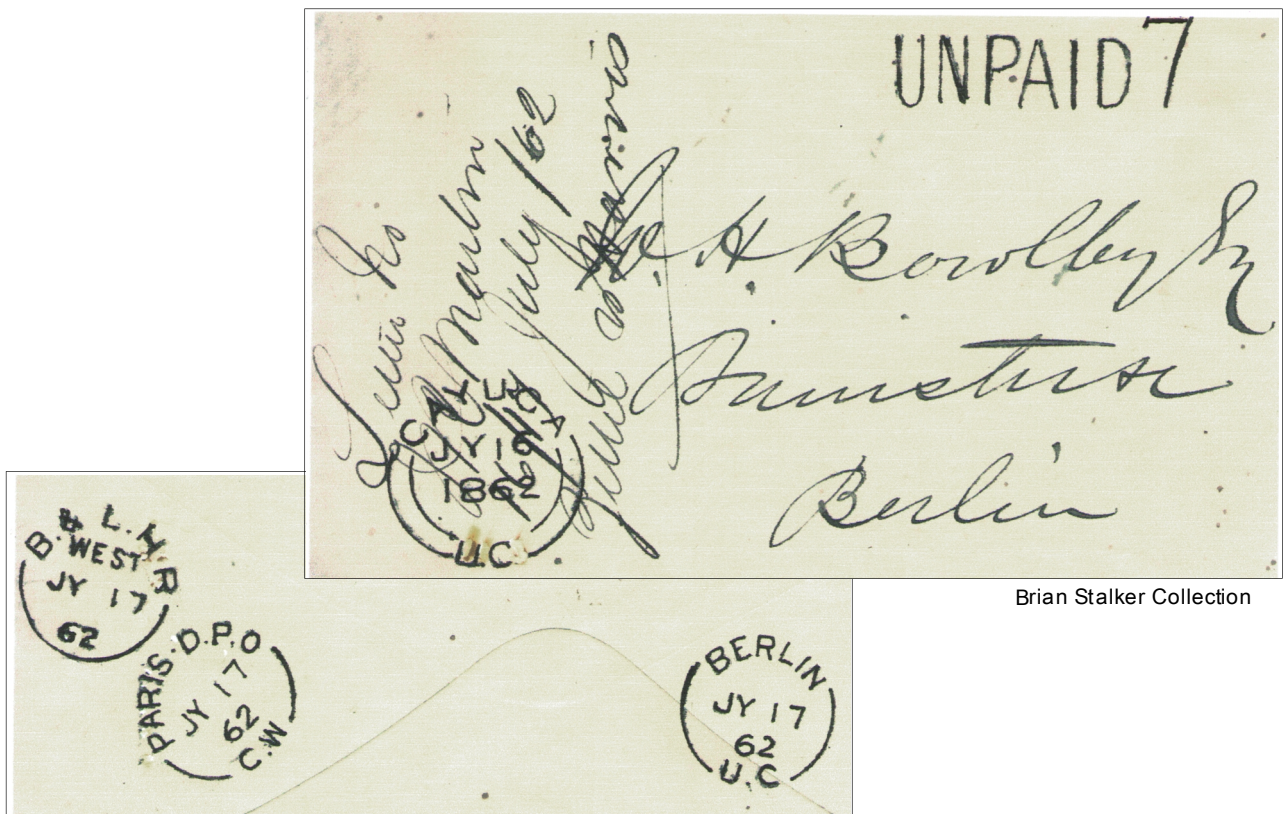 UNPAID 7
July /62
H. Bowlby
Berlin
CAYUGA
JY 16
1862
U.C
Brian Stalker Collection
B. & L. H R
WEST
JY 17
62
PARIS. D.P.O
JY 17
62
C.W
BERLIN
JY 17
62
U.C